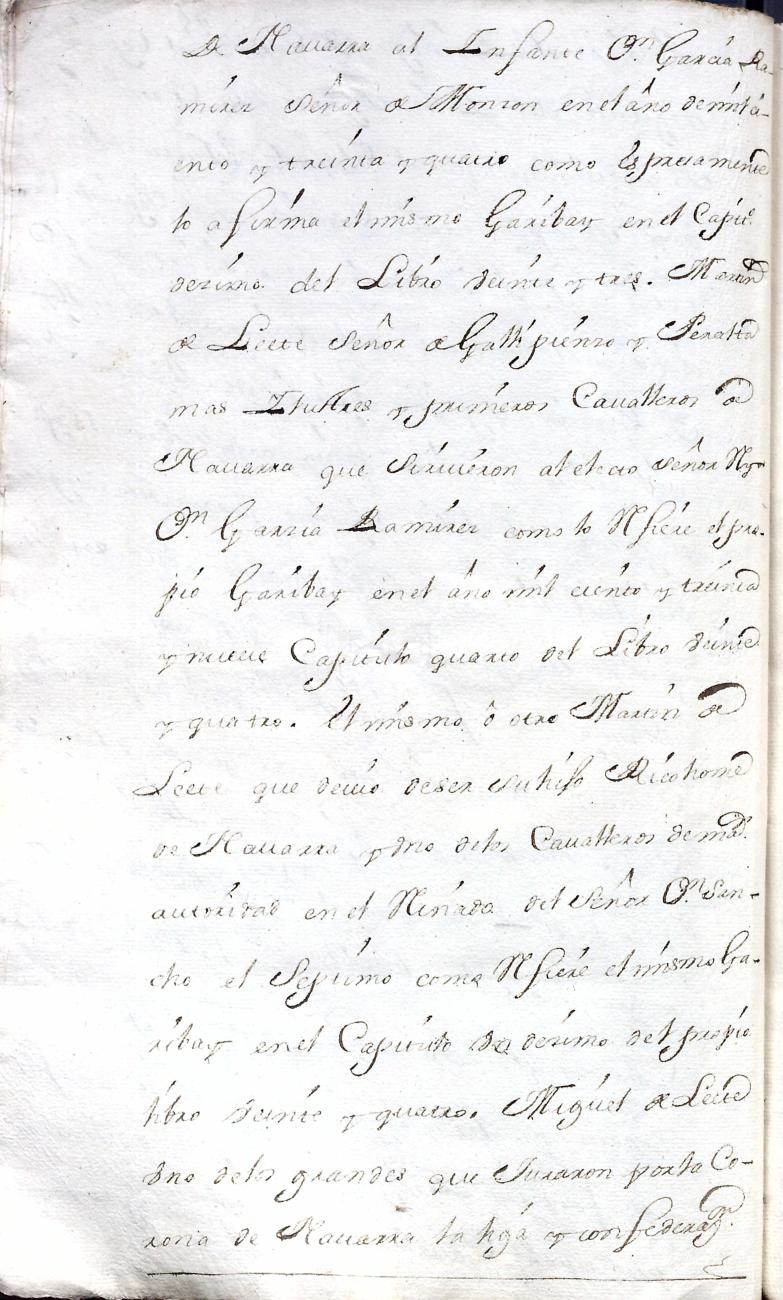 de Nauarra al Infante Dn. Garcia Ra-
mirez Señor de Monzon en el año de mil çi-
ento y treinta y quatro como Espresamente
lo afirma el mismo Garibay en el Capito.
dezimo del Libro veinte y tres. Martin
de Leete Señor de Gallipienzo y Peralta
mas Ilustres y primeros Cavalleros de
Nauarra que siruieron al electo señor Rey
Dn. Garzia Ramirez como lo Refiere el pro-
pio Garibay en el año mil ciento y treinta
y nueue Capitulo quarto del Libro veinte
y quatro. El mismo ô otro Martin de
Leete que deuio de ser su hijo Ricohome
de Nauarra y vno de los Cavalleros de mar.
autoridad en el Reinado del Señor Dn. San-
cho el Septimo como Refiere el mismo Ga-
ribay en el Capitulo dezimo del propio
libro veinte y quatro. Miguel de Leete
vno de los grandes que Juraron por la Co-
rona de Nauarra la liga y confederazn.